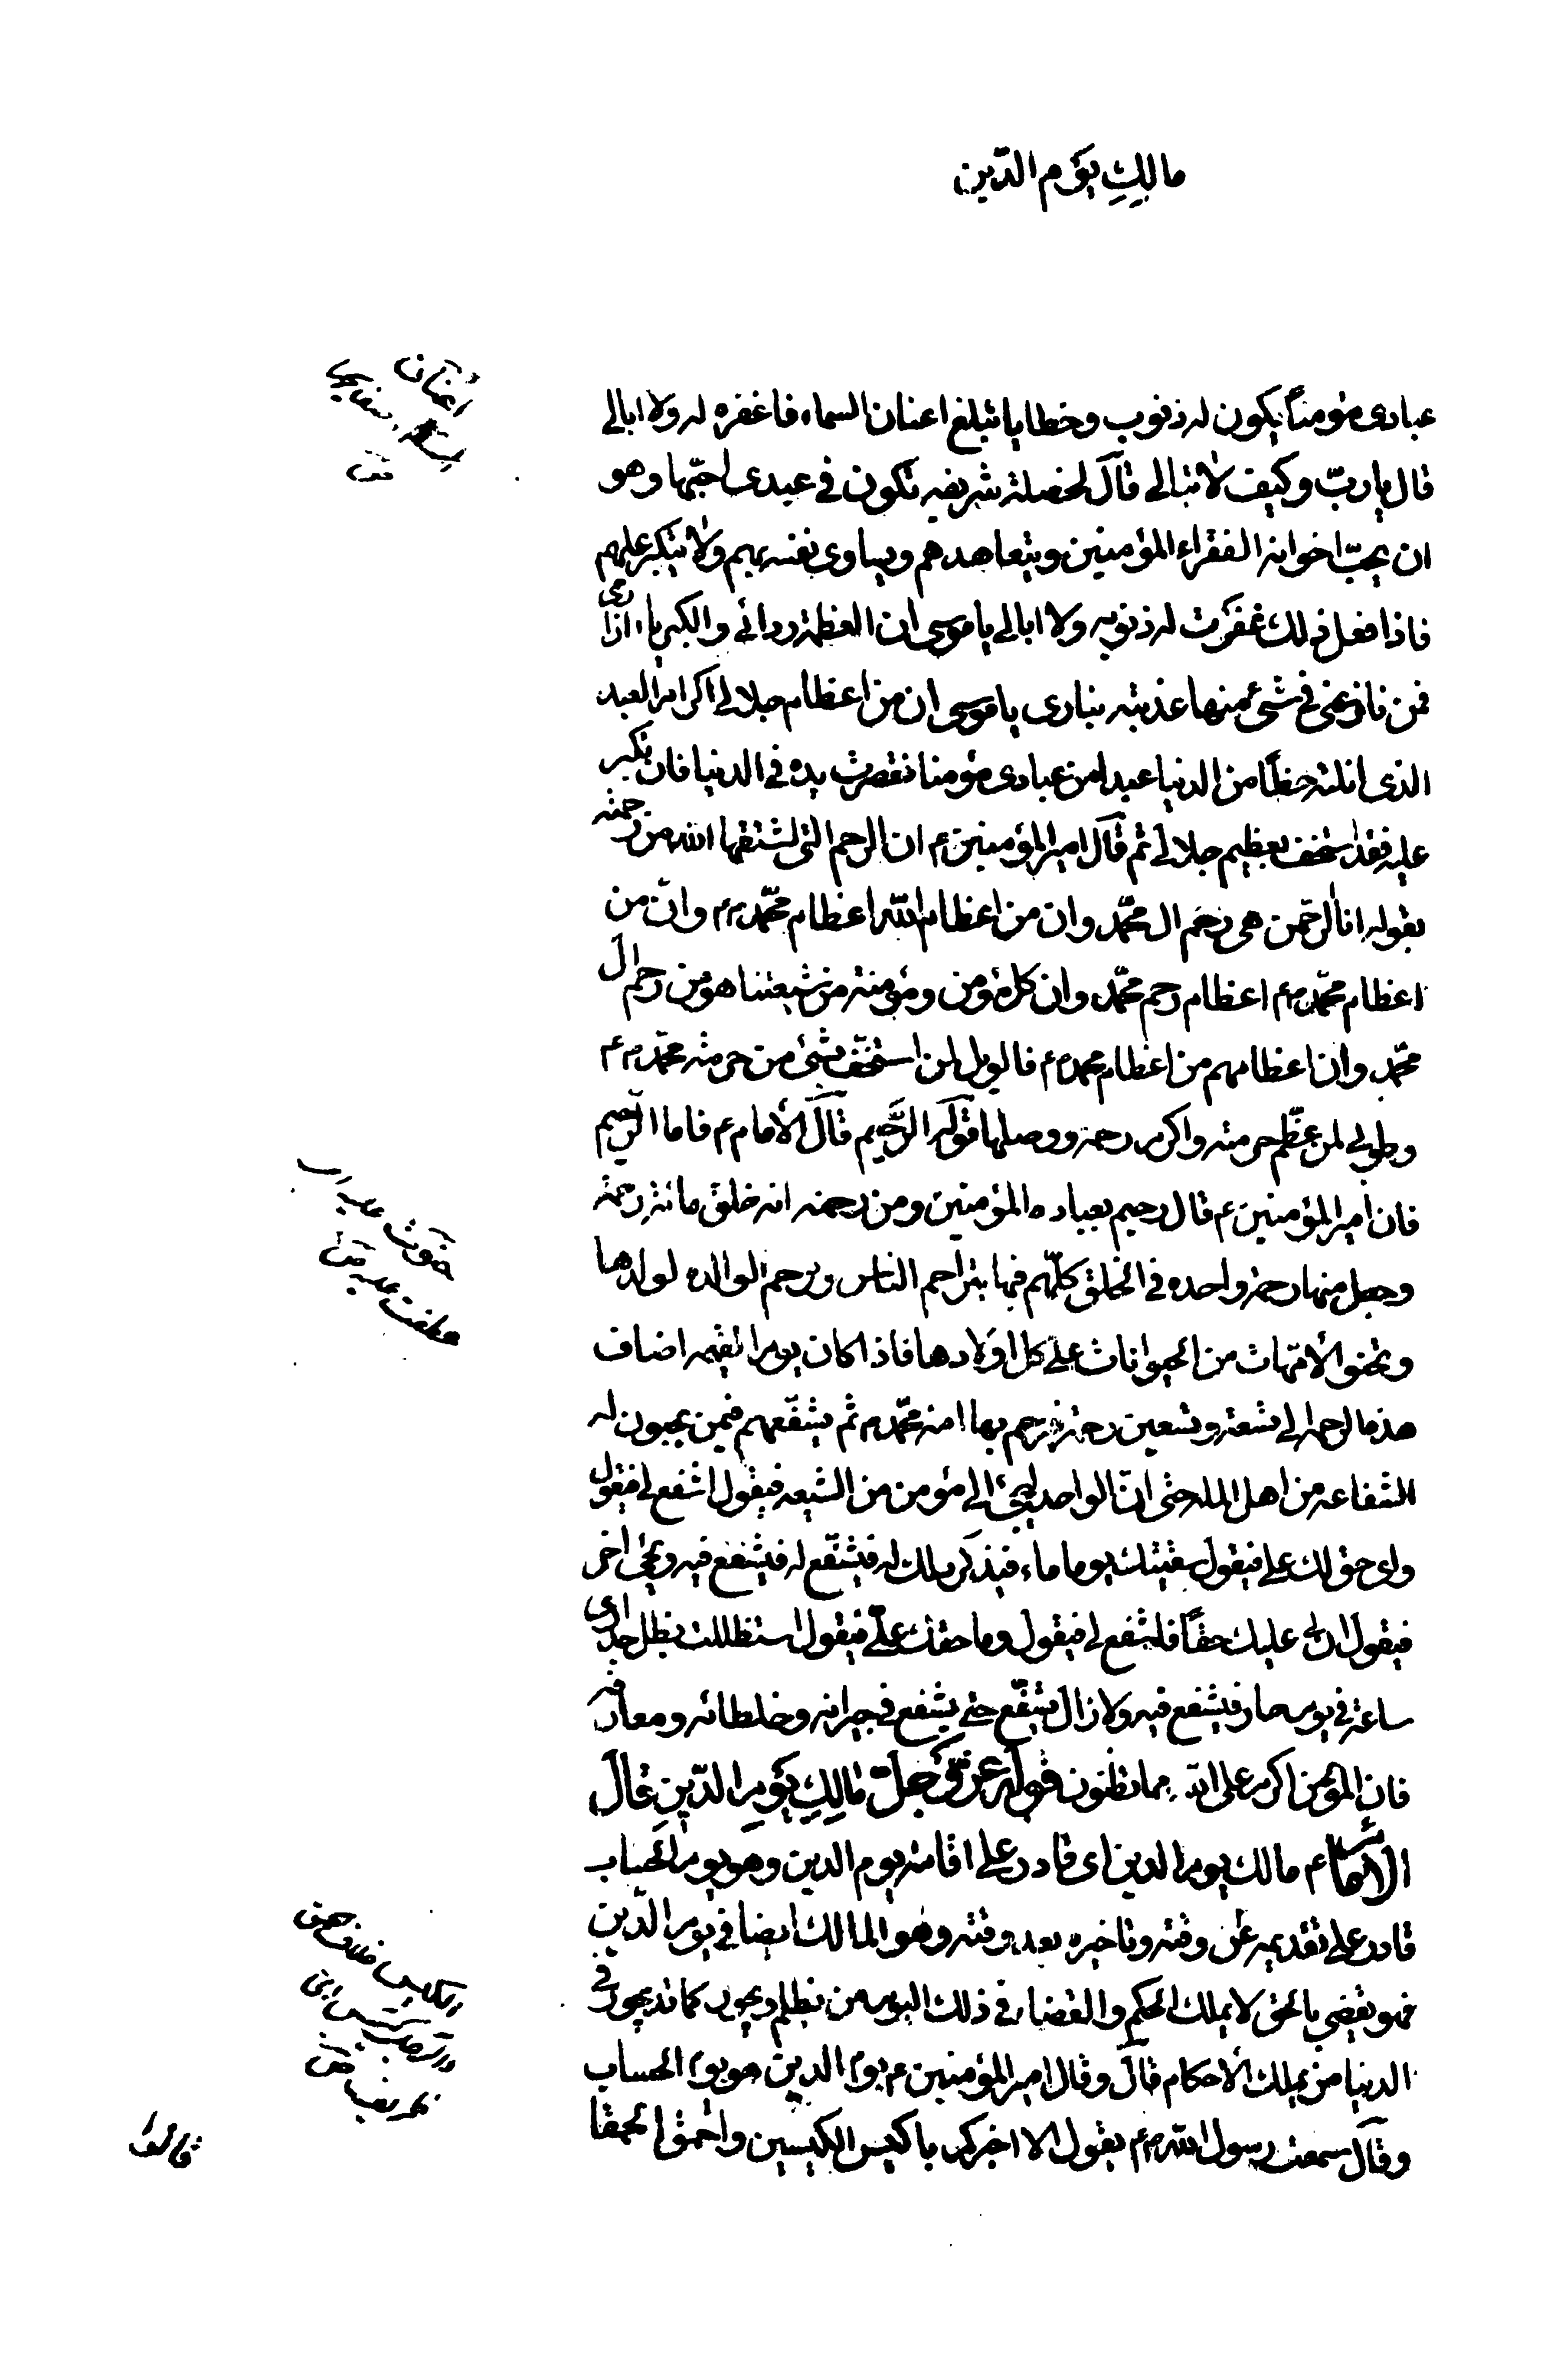 مالِكِ يَوْمِ الدّين
عبادى مؤمناً يكون له ذنوب وخطايا تبلغ اعنان السماء فاغفره له ولا ابالى
قال يا ربّ وكيف لا تبالى قال لخصلة شريفه تكون فى عبدى احبّها وهو
ان يحبّ اخوانه الفقراء المؤمنين ويتعاهدهم ويساوى نفسه بهم ولا يتكبر عليهم
فاذا فعل ذلك غفرت له ذنوبه ولا ابالى يا موسى ان العظمة ردائى والكبرياء ازارى
فمن نازعنى فى شئ منهما عذبته بنارى يا موسى ان من اعظام جلالى اكرام العبد
الذى انلته حظّا من الدنيا عبدا من عبادى مؤمنا قصرت يده فى الدنيا فان تكبر
عليه فقد استخف بعظيم جلالى ثم قال امير المؤمنين ع ان الرحم التى اشتقها الله من رحمته
بقوله انا الرحمن هى رحم ال محمّد وان من اعظام الله اعظام محمّد ص ع وانّ من
اعظام محمّد ص ع اعظام رحم محمّد وان كل مؤمن ومؤمنة من شيعتنا هو من رحم ال
محمّد وان اعظامهم من اعظام محمد ص ع فالويل لمن استخفّ بشئ من حرمة محمّد ص ع
وطوبى لمن عظّم حرمته واكرم رحمه ووصلها قوله الرَّحيم قال الأمام ع فاما الرّحيم
فان امير المؤمنين ع قال رحيم بعباده المؤمنين ومن رحمته انه خلق مائة رحمة
وجعل منها رحمة واحده فى الخلق كلّهم فبها يتراحم الناس وترحم الوالده لولدها
وتحنو الأمّهات من الحيوانات على كل اولادها فاذا كان يوم القيمه اضاف
هذه الرحمه الى تسعة وتسعين رحمة فيرحم بها امة محمّد ص ثم يشفّعهم فيمن يحبون له
الشفاعه من اهل المله حتى انّ الواحد ليجئ الى مؤمن من الشيعه فيقول اشفع لى فيقول
واى حق لك على فيقول سقيتك يوما ماء فيذكر ذلك له فيشفّع له فيشفع فيه ويجئ اخر
فيقول ان لى عليك حقّا فاشفع لى فيقول وما حقك علىّ فيقول استظللت بظل جدارى
ساعة فى يوم حار فيشفع فيه ولا زال يشفّع حتى يشفع فى جيرانه وخلطائه ومعارفه
فان المؤمن اكرم على الله مما تظنون قوله عزّ وجلّ مالِكِ يَوْمِ الدّينِ قال
الأمام ع مالك يوم الدين اى قادر على اقامة يوم الدين وهو يوم الحساب
قادر على تقديمه عن وقته وتاخيره بعد وقته وهو المالك ايضا فى يوم الدّين
فهو يقضى بالحق لا يملك الحكم والقضاء فى ذلك اليوم من يظلم ويجور كما قد يجور فى
الدنيا من يملك الأحكام قال وقال امير المؤمنين ع يوم الدين هو يوم الحساب
وقال سمعت رسول الله ص ع يقول الا اخبركم باكيس الكيّسين واحمق الحمقا
قالوا
اعنان
السماء صفايحها
ق
حنوت عليه
عطفت عليه ق
الكيس خلاف الحمق